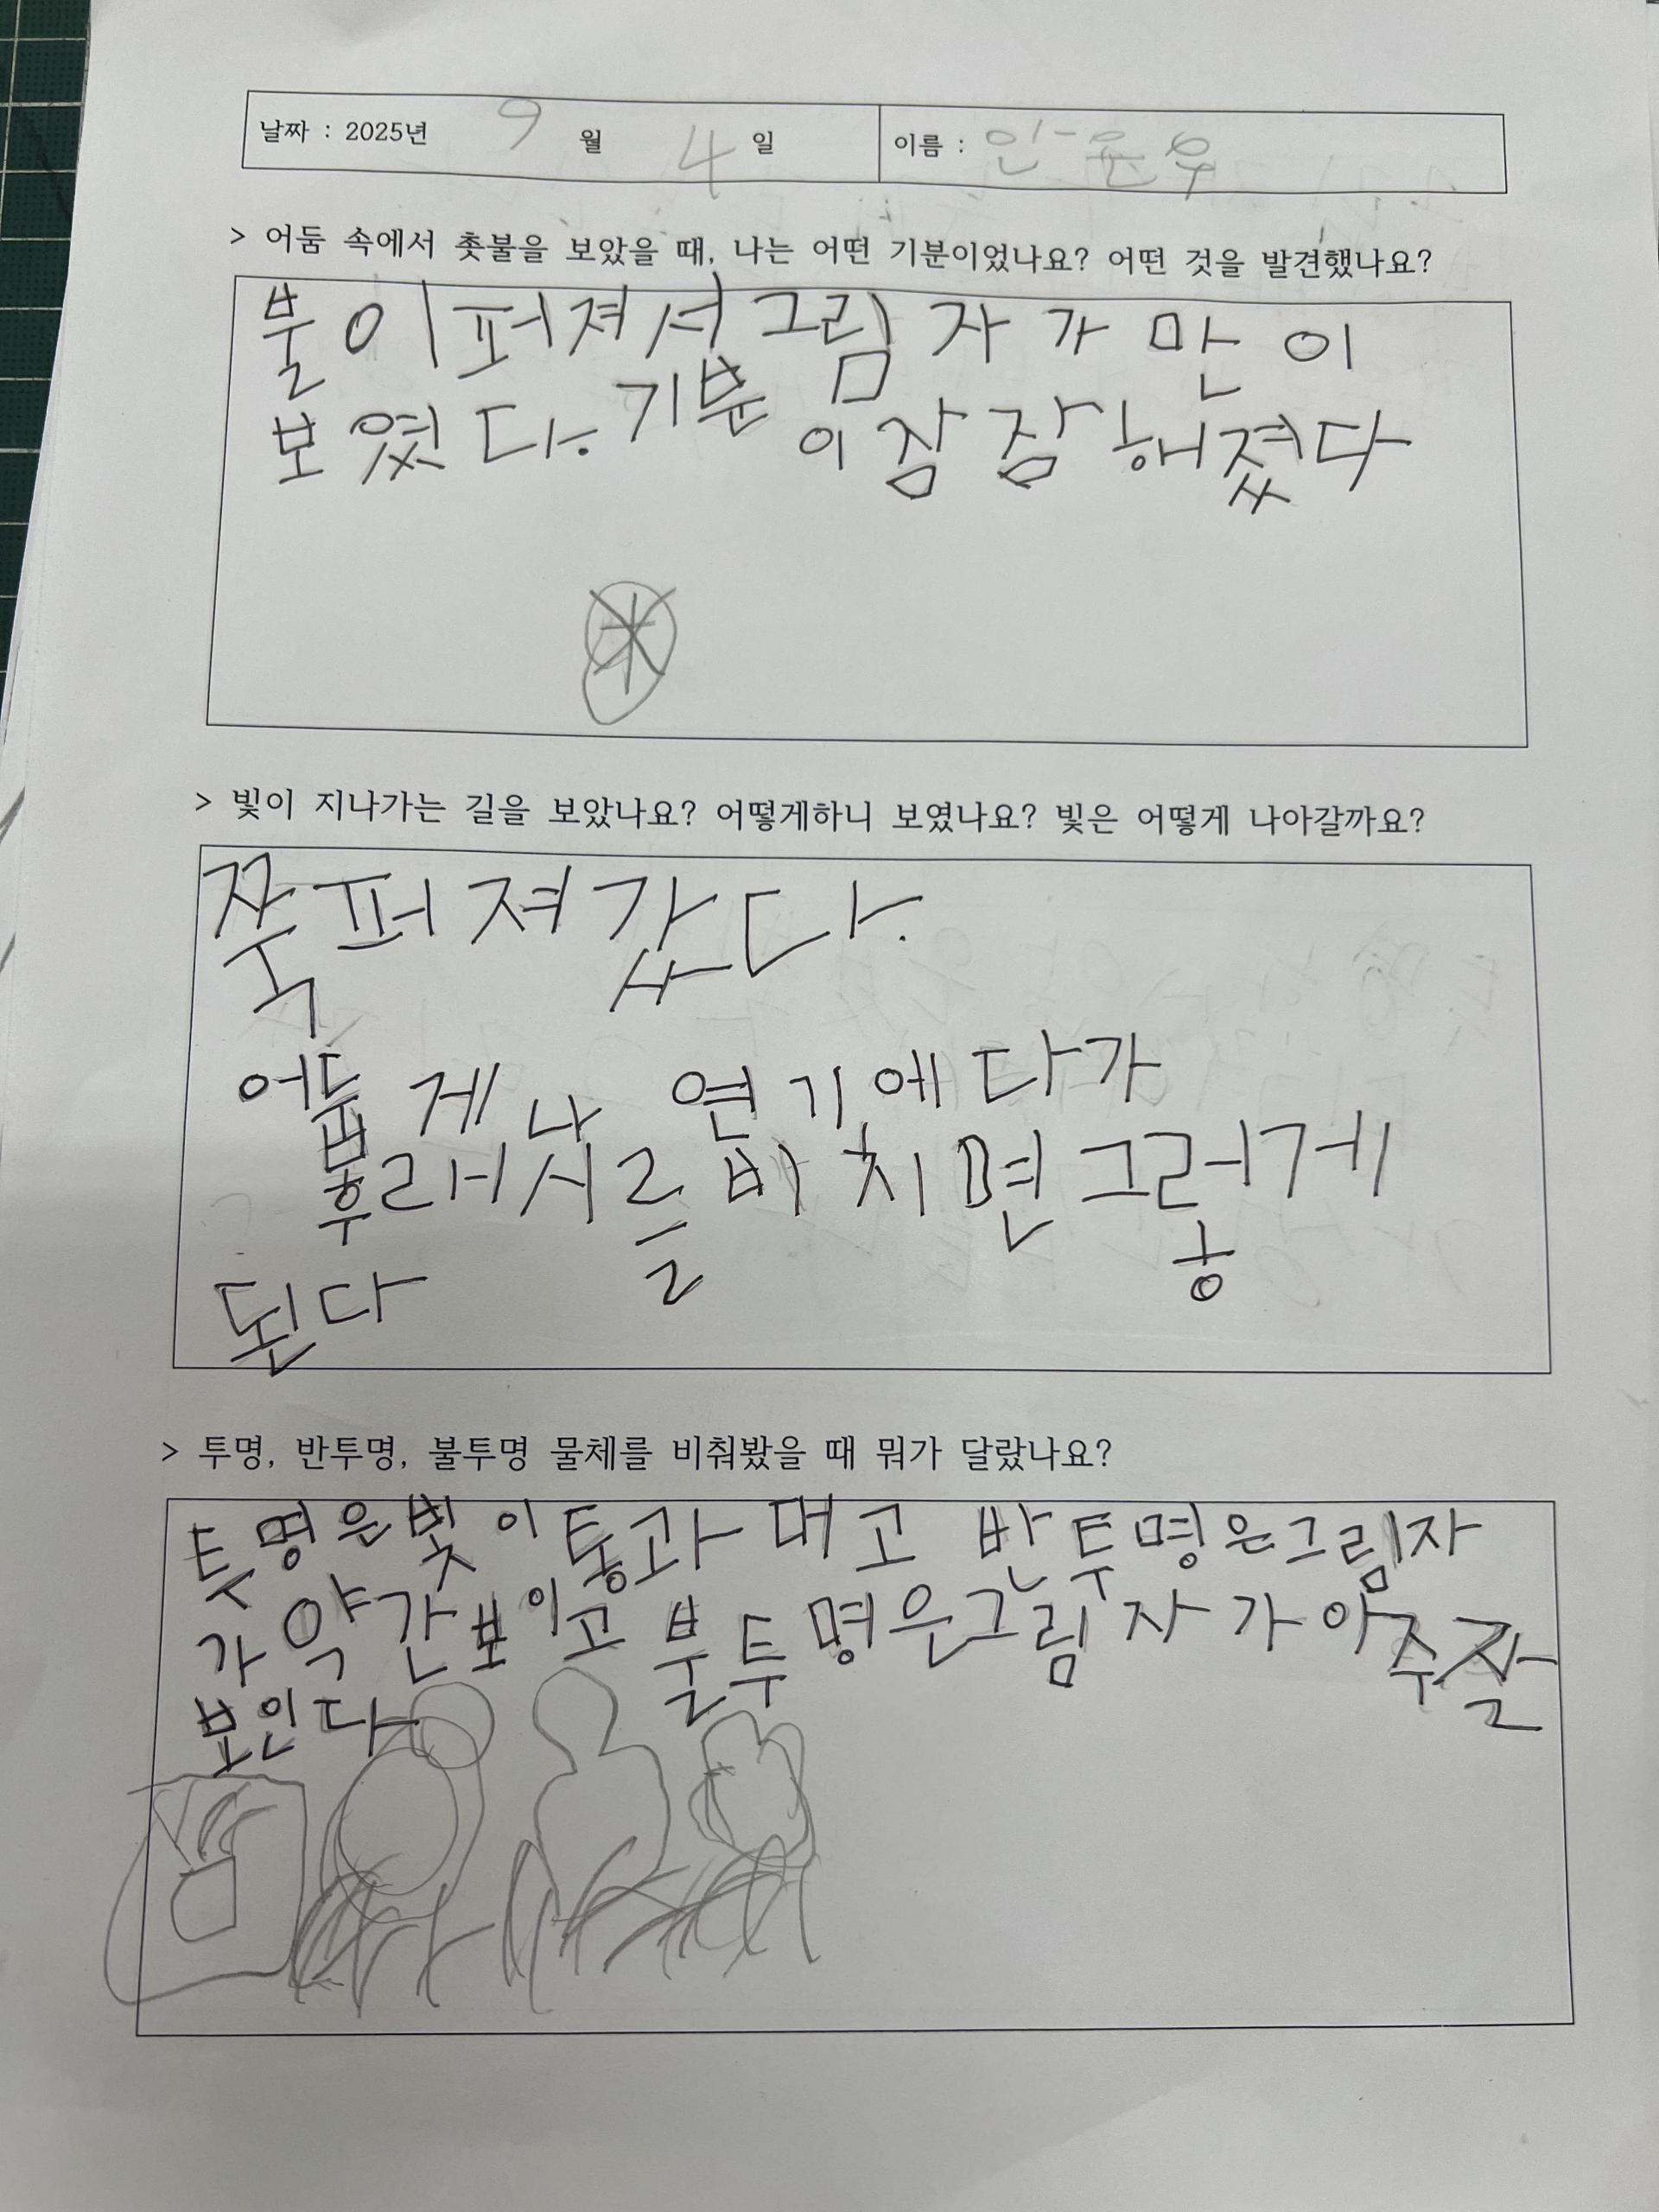 날짜 : 2025년 9 월 4 일 이름 : 인윤우
> 어둠 속에서 촛불을 보았을 때, 나는 어떤 기분이었나요? 어떤 것을 발견했나요?
불이퍼져서그림자가만이
보였다. 기분이잠잠해졌다
> 빛이 지나가는 길을 보았나요? 어떻게하니 보였나요? 빛은 어떻게 나아갈까요?
쭉퍼져갔다.
어둡게나 연기에다가
후래시를비치면그렇게
된다
> 투명, 반투명, 불투명 물체를 비춰봤을 때 뭐가 달랐나요?
투명은빛이통과대고 반투명은그림자
가약간보이고 불투명은그림자가아주잘
보인다